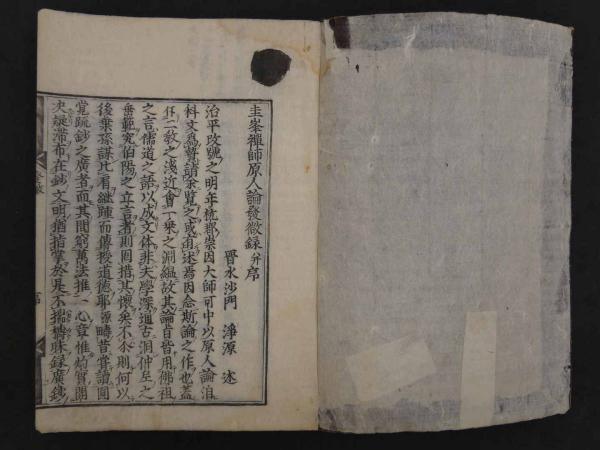 圭峯禪師原人論發微錄并序
晉水沙門 淨源 述
治平改號之明年杭郡崇因大師可中以原人論洎
科文爲贄請求覽之或甫述焉因念斯論之作也蓋
任二教之淺近會一乘之淵緼故其論旨皆用佛祖
之言儒道之語以成文体非夫學深通古洞仲至之
垂範究伯陽之立言者則罔措其懷矣不尒則何以
後葉孫謀比肩継踵而傳授道德耶源疇昔甞讀圓
覺疏鈔之廣者而其間窮萬法推一心章惟炳實開
決疑滯布在鈔文明猶指掌於是不揣檮昧録廣鈔